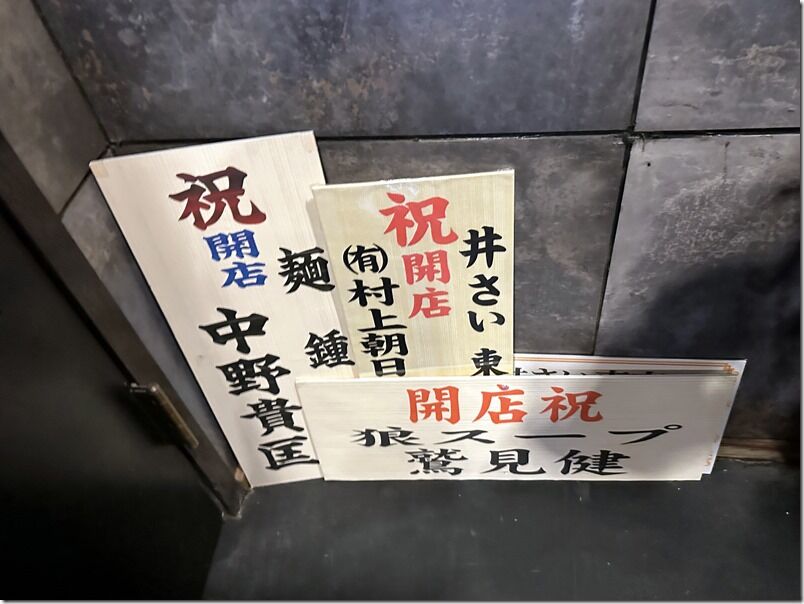 祝
開店
麺 鍾
中野貴匡
祝開店
井さい 東
㈲村上朝日
開店祝
狼スープ
鷲見健